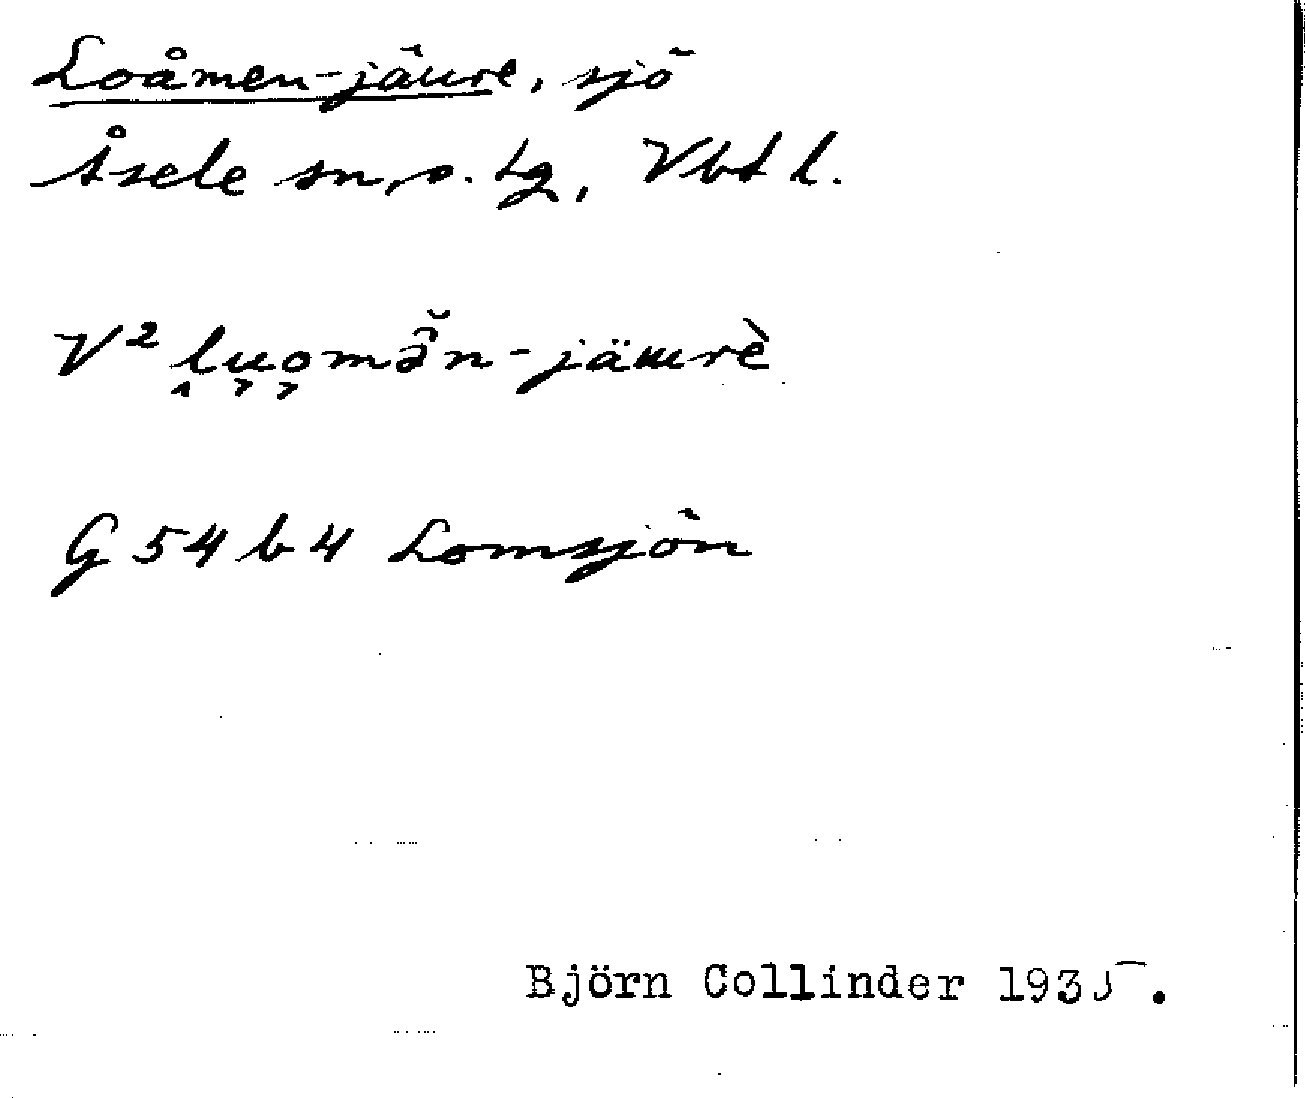 Loåmen-jäure, sjö
Åsele sn, o. tg, Vbt l.
V² ḽu̬o̬mə̃̆n-jäurè
G 54 b 4 Lomsjön
Björn Collinder 1935.